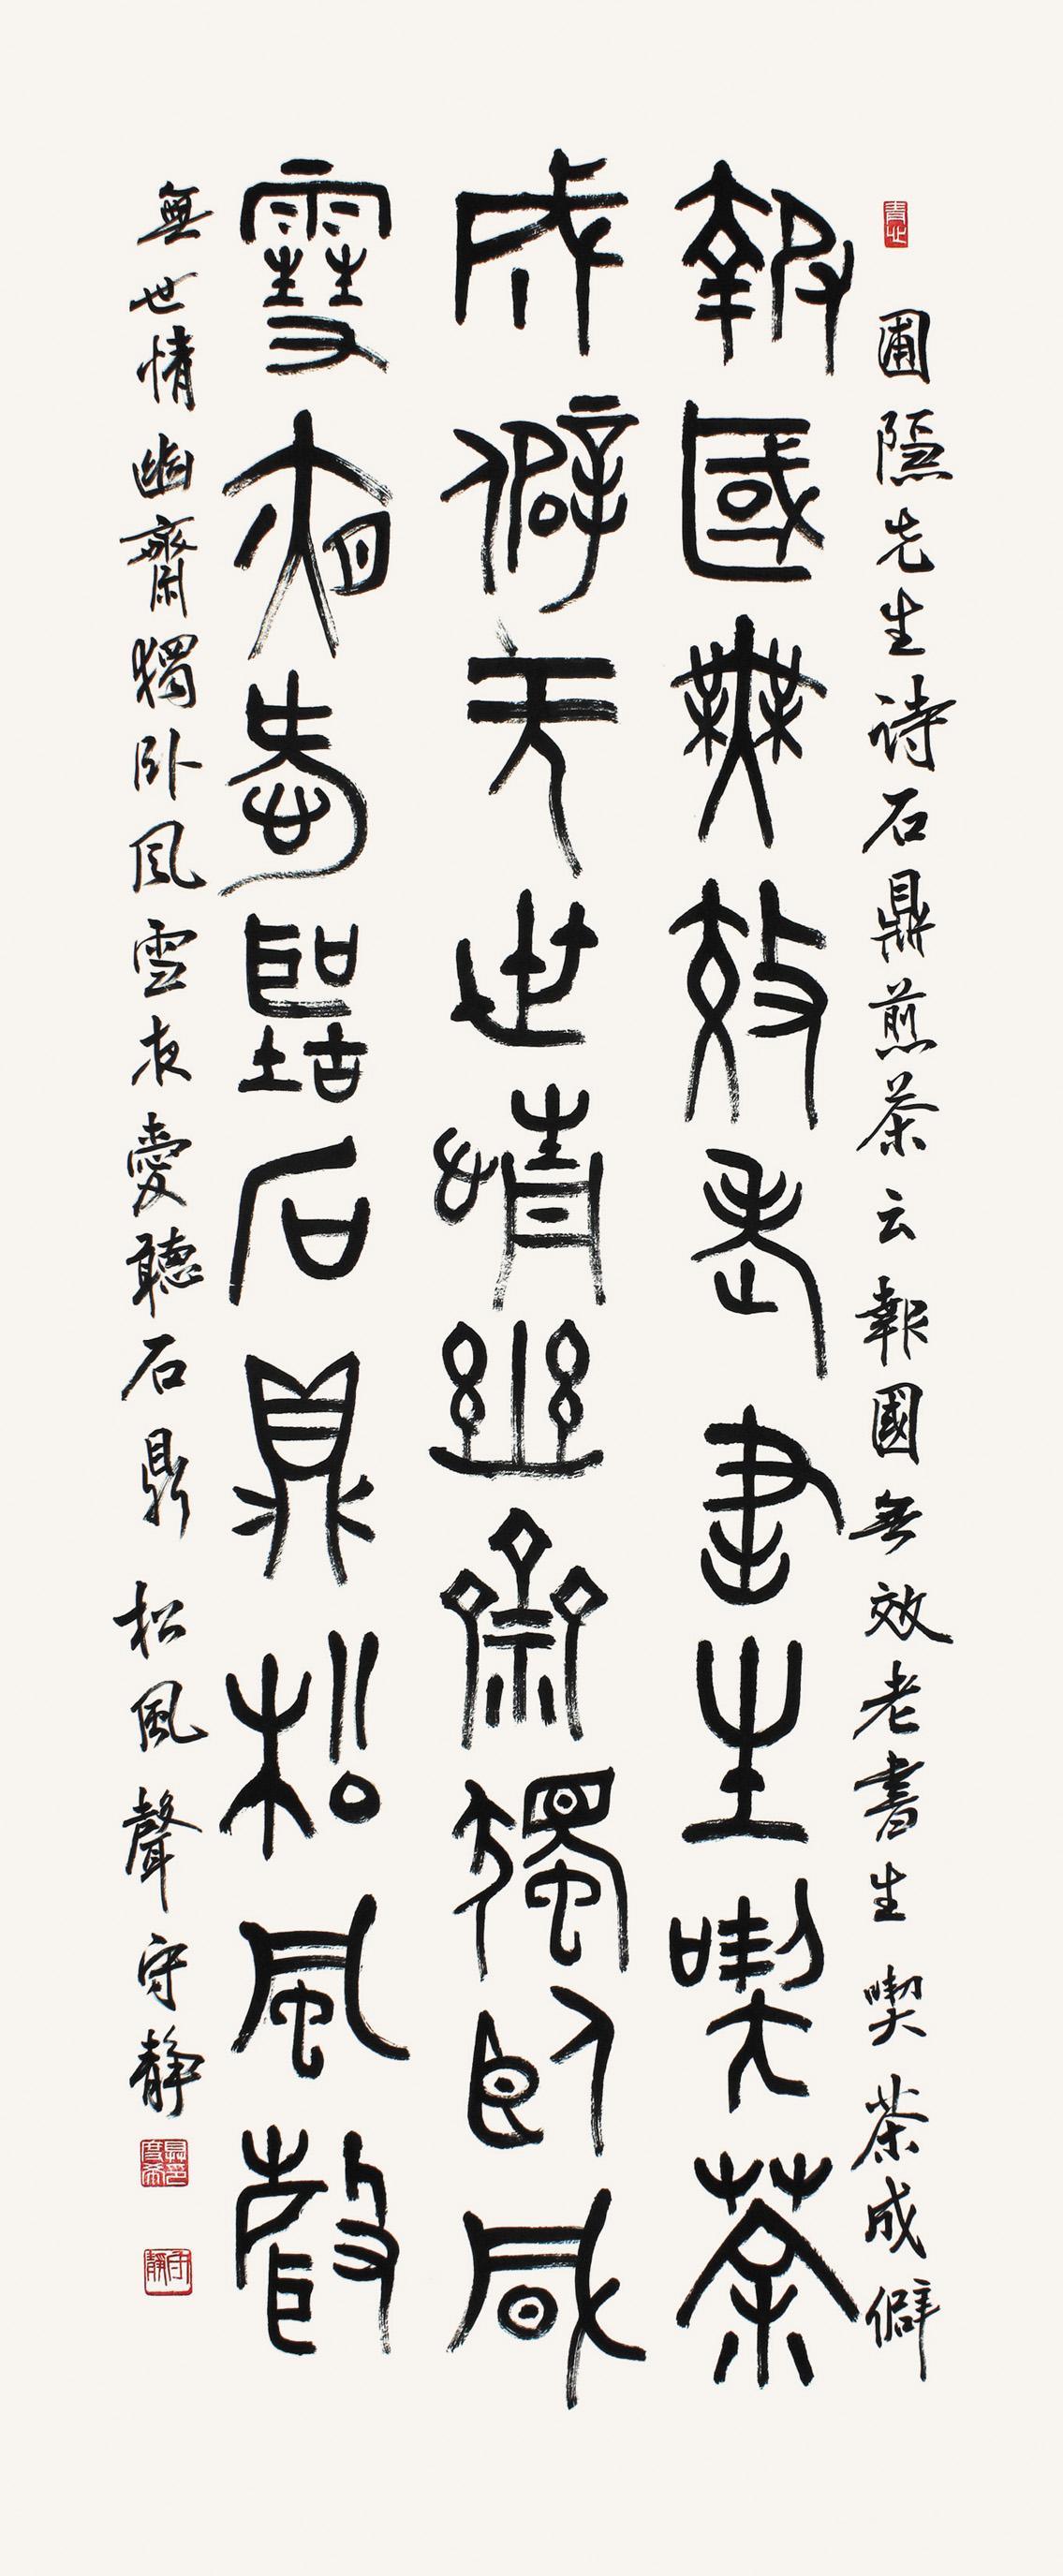 圃隱先生诗石鼎煎茶云報國無效老書生喫茶成僻
報國無效老書生喫茶
成僻无世情幽齋獨臥風
雪夜愛聽石鼎松風聲
無世情幽齋獨卧風雪夜愛聽石鼎松風聲守静
守靜